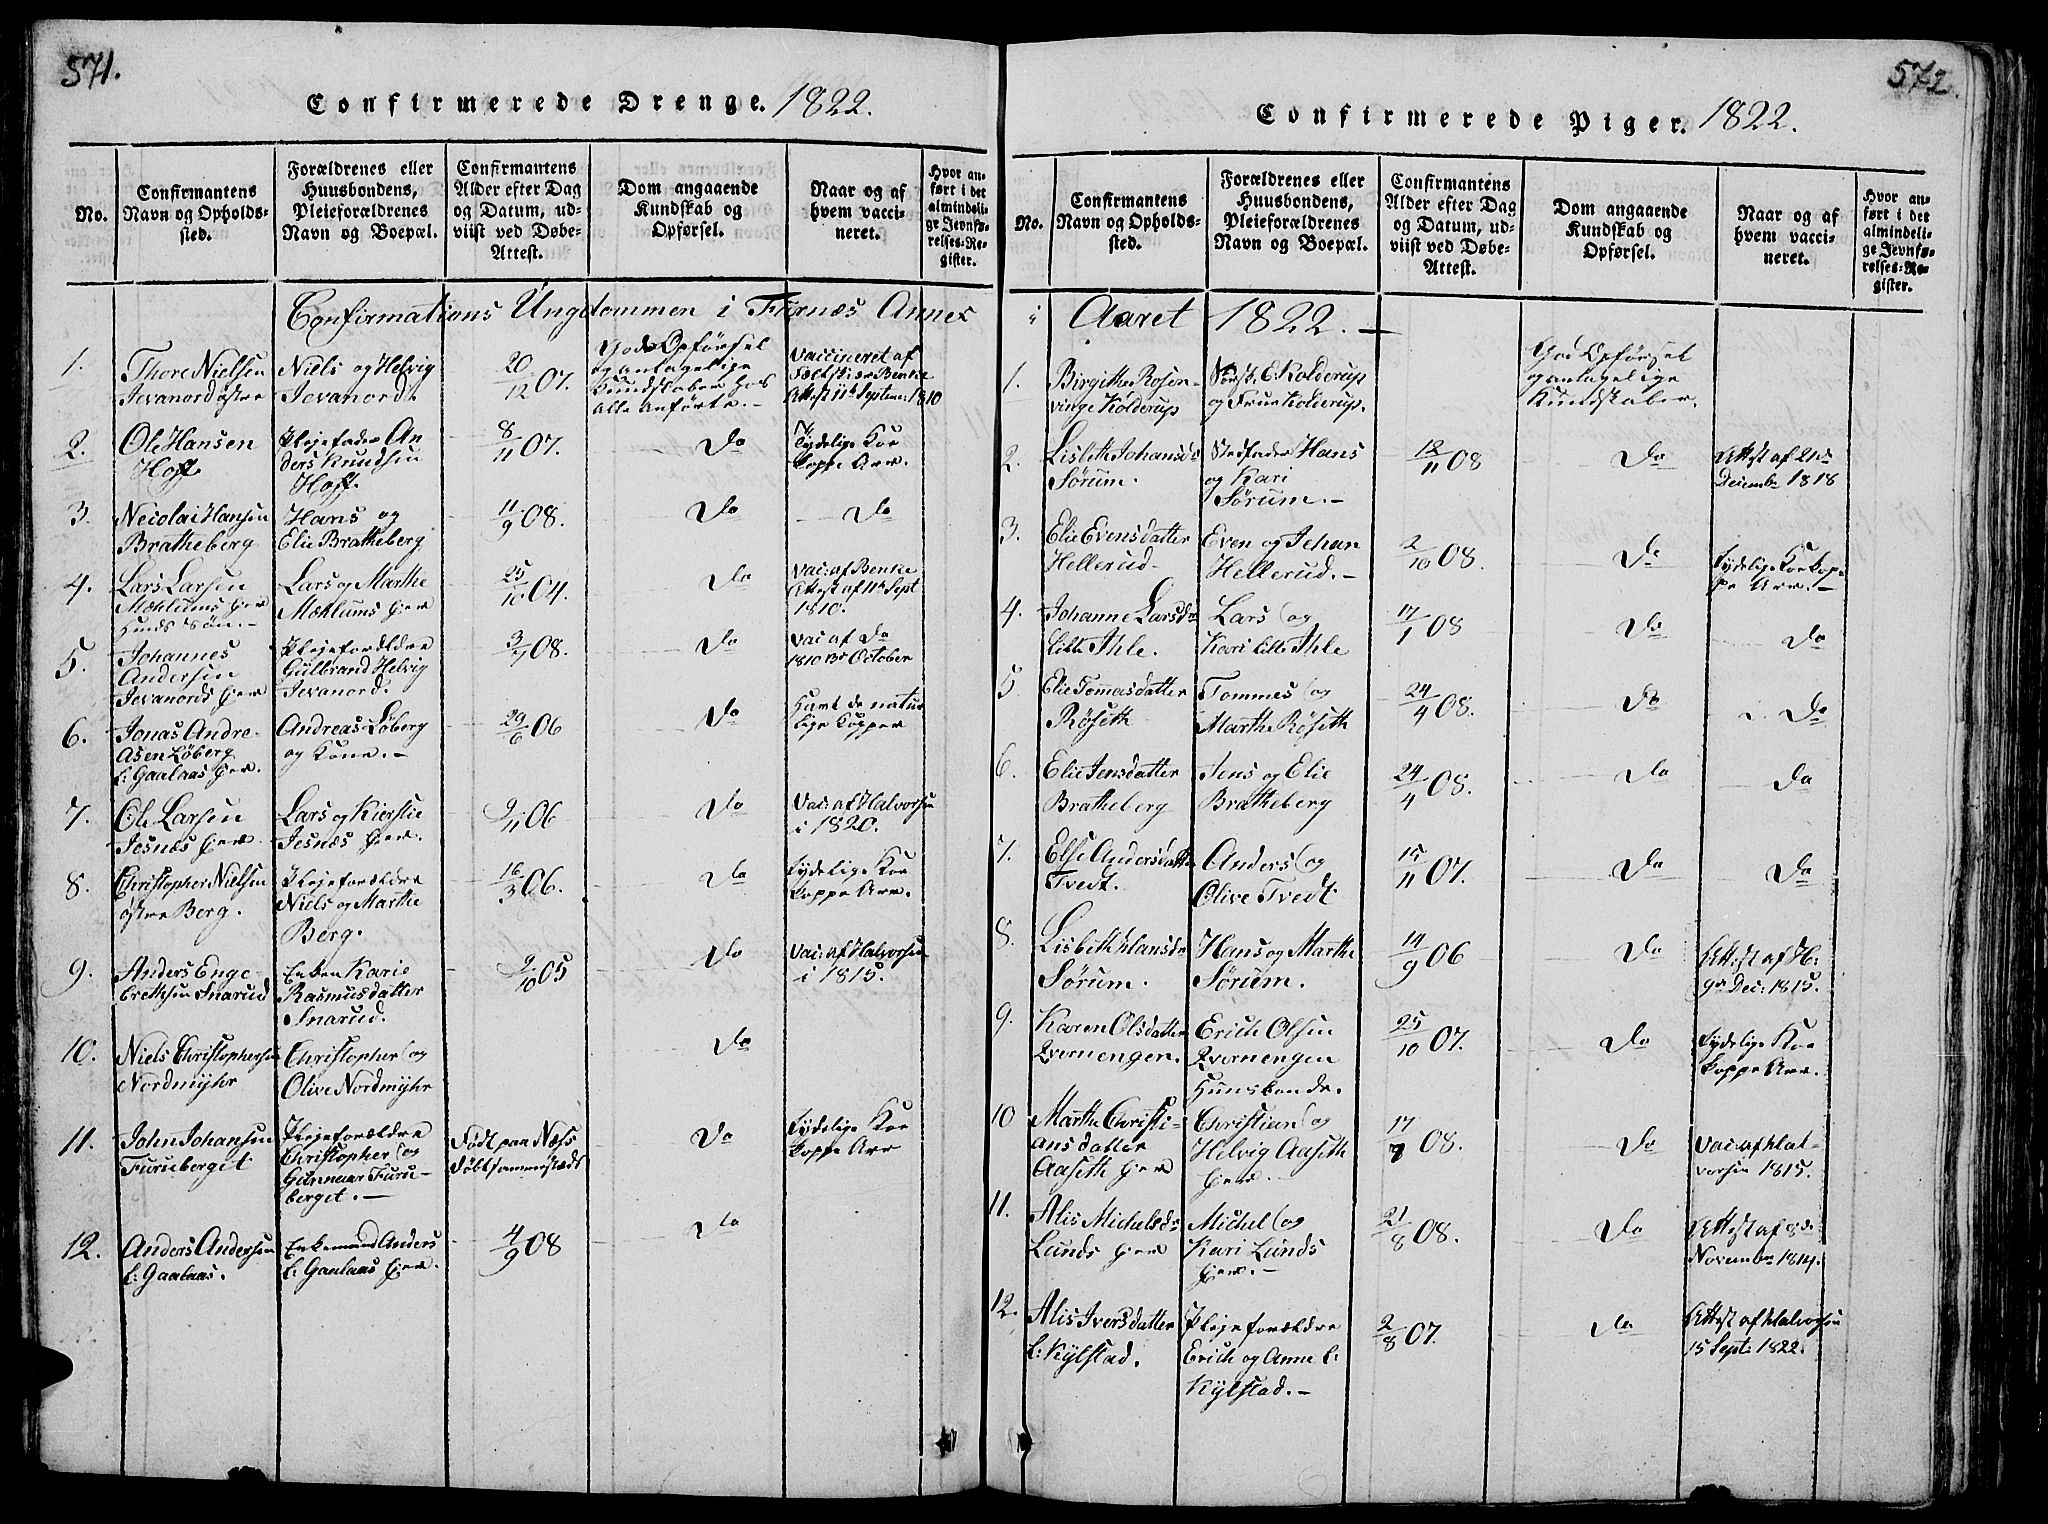 571.
Confirmerede Drenge. 1822.
No.
Confirmantens
Navn og Opholds-
sted.
Forældrenes eller
Huusbondens,
Pleieforældrenes
Navn og Boepæl.
Confirmantens
Alder efter Dag
og Datum, ud-
viist ved Døbe-
Attest.
Dom angaaende
Kundskab og
Opførsel.
Naar og af
hvem vacci-
neret.
Hvor an-
ført i det
almindeli-
ge Jevnfø-
relses-Re-
gister.
Confirmations Ungdommen i Furnæs Annex
1.
Thore Nielsen
Jevanord østre
Niels og Helvig
Jevanord.
20/12 07.
Gods Opførsel
og antagelige
Kundskaber hos
Alle anførte.
Vaccineret af
Benke
Attest 11te Septem: 1810
2.
Ole Hansen
Hoff
Plejefader An
ders Knudsen
Hoff.
8/11 07.
Do
Tydelige Koe
koppe Arr.
3.
Necolai Hansen
Bratheberg
Hans og
Elie Bratheberg
11/9 08.
Do
Do
4.
Lars Larsen
Mæhlums Eier
Hunds Søn.
Lars og Marthe
Mæhlums Eier
25/10 04.
Do
Vac: af Benke
Attest af 11te Sept
1810.
5.
Johannes
Andersen
Jevanords Eier
Plejeforældre
Gulbrand Helvig
Jevanord.
3/7 08.
Do
Vac af Do
1810 13de October
6.
Jonas Andre-
asen Løberg
l: Gaalaas Eier.
Andreas Løberg
og Kone.
29/6 06
Do
Havt de natur
lige Kopper
7.
Ole Larsen
Jesnæs Eier.
Lars og Kierstie
Jesnæs Eier.
9/11 06
Do
Vac: af Halvorsen
i 1820.
8.
Christopher Nielsen
østre Berg.
Plejeforældre
Niels og Marthe
Berg.
16/3 06.
Do
Tydelige Koe
koppe Arr.
9.
Anders Enge-
bretsen Snarud
Enken Karie
Rasmusdatter
Snarud.
9/10 05
Do
Vac: af Halvorsen
i 1815.
10.
Niels Christophersen
Nordmÿhr
Christopher og
Olive Nordmÿhr
Do
11.
John Johansen
Furuberget
Plejeforældre
Christopher og
Gunnaar Furu-
berget.
Født paa Næss
Døbt sammesteds
Do
Tydelige Koe
koppe Arr
12.
Anders Andersen
l: Gaalaas.
Enkemand Anders
l: Gaalaas Eier.
4/9 08
Do
572.
Confirmerede Piger. 1822.
No.
Confirmantens
Navn og Opholds-
sted.
Forældrenes eller
Huusbondens,
Pleieforældrenes
Navn og Boepæl.
Confirmantens
Alder efter Dag
og Datum, ud-
viist ved Døbe-
Attest.
Dom angaaende
Kundskab og
Opførsel.
Naar og af
hvem vacci-
neret.
Hvor an-
ført i det
almindeli-
ge Jevnfø-
relses-Re-
gister.
i Aaret 1822.
1.
Birgithe Rosen-
vinge Kolderup
E: Kolderup
og Frue Kolderup.
God Opførsel
og antagelige
Kundskaber.
2.
Lisbeth Johansdr
Sørum.
Stedfader Hans
og Kari
Sørum.
12/11 08
Do
Attest af 21de
Decembr 1818
3.
Elie Evensdatter
Hellerud
Even og Jehan
Hellerud.
2/10 08.
Do
Tydelige Koekop-
pe Arr.
4.
Johanne Larsdr
Litle Ihle.
Lars og
Kari litle Ihle
17/1 08
Do
Do
5
Elie Tommasdatter
Røseth
Tommes og
Marthe Røseth
24/4 08.
Do
Do
6.
Elie Jensdatter
Bratheberg
Jens og Elie
Bratheberg
24/4 08.
Do
Do
7.
Else Andersdatter
Tvedt.
Anders og
Olive Tvedt
15/11 07.
Do
Do
8.
Lisbeth Hansdr
Sørum.
Hans og Marthe
Sørum.
14/9 06
Do
Attest af H:
9de Dec: 1815.
9.
Karen Olsdatter
Qvernengen.
Erich Olsen
Qvernengen
Huusbonde.
25/10 07.
Do
Tydelige Koe
koppe Arr.
10
Marthe Christi-
ansdatter
Aaseth Eier
Christian og
Helvig Aaseth
Eier.
17/9 08.
Do
Vac: af Hal-
vorsen 1815.
11.
Alis Michelsdr
Lunds Eier
Michel og
Kari Lunds
Eier.
21/8 08.
Do
Attest af 8de
Novembr 1814.
12.
Alis Iversdatter
l: Kÿlstad.
Plejeforældre
Erich og Anne l:
Kÿlstad.
2/8 07.
Do
Attest af Halvorsen
15 Sept: 1822.